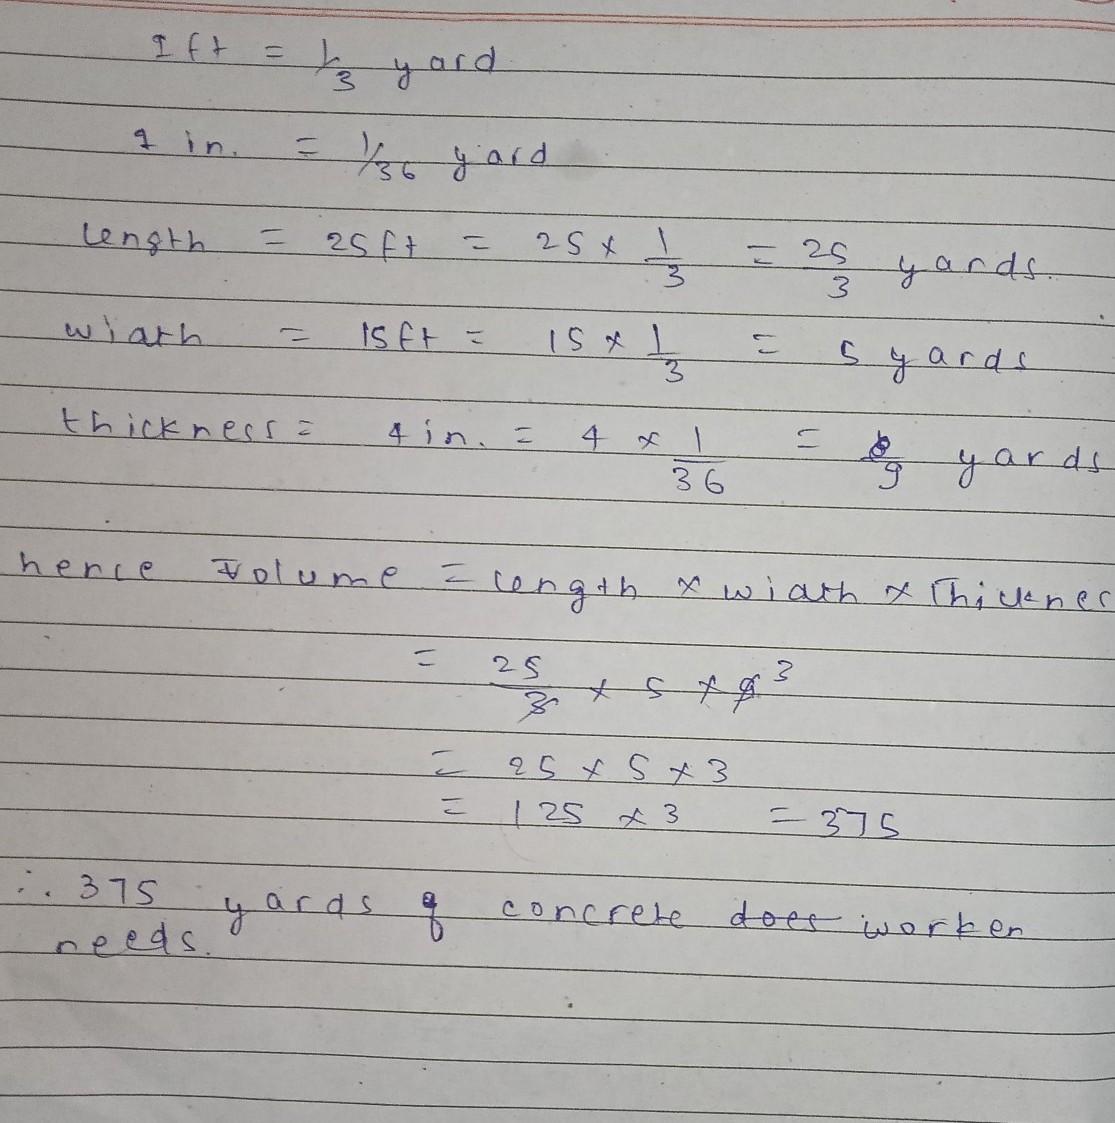 1 ft = 1/3 yard
1 in. = 1/36 yard
length = 25ft = 25 × 1/3 = 25/3 yards.
width = 15ft = 15 × 1/3 = 5 yards
thickness = 4 in. = 4 × 1/36 = /9 yards
hence volume = length × width × Thicknes
= 25/3 × 5 × 9 3
= 25 × 5 × 3
= 125 × 3 = 375
∴ 375 yards of concrete does worker
needs.